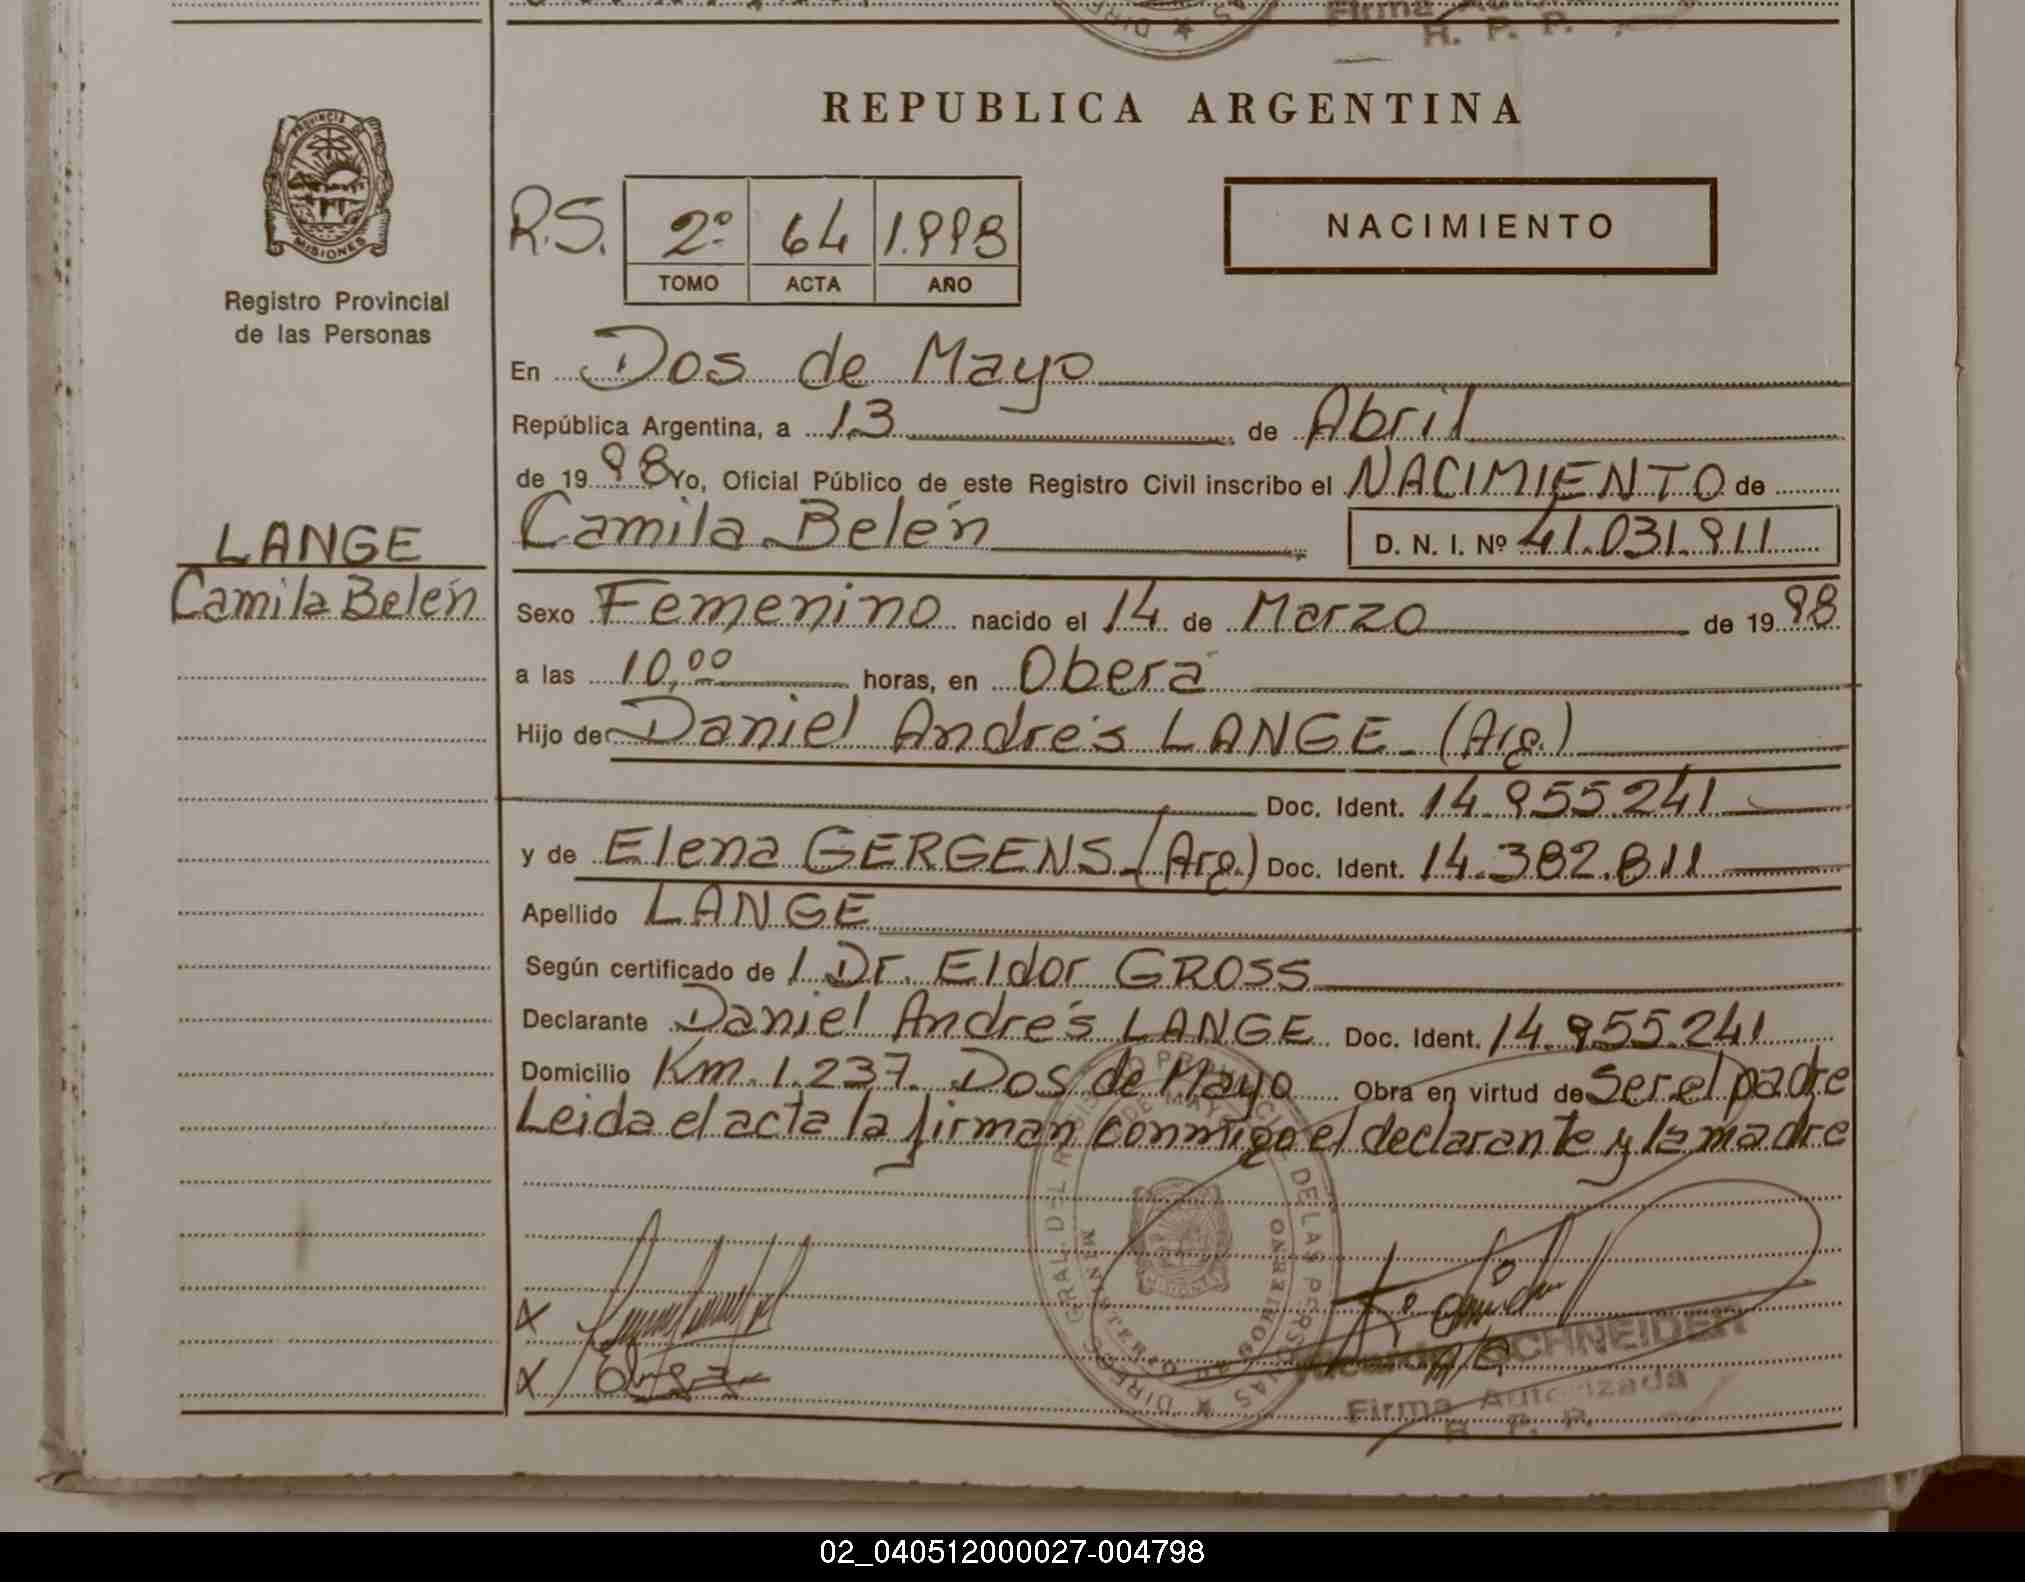 REPUBLICA ARGENTINA
PROVINCIA DE
MISIONES
Registro Provincial
de las Personas
R.S. 2º 64 1.998
TOMO ACTA AÑO
NACIMIENTO
En Dos de Mayo
República Argentina, a 13 de Abril
de 19 98 Yo, Oficial Público de este Registro Civil inscribo el NACIMIENTO de
Camila Belén D. N. I. Nº 41.031.911
LANGE
Camila Belén
Sexo Femenino nacido el 14 de Marzo de 19 98
a las 10,00 horas, en Oberá
Hijo de Daniel Andrés LANGE (Arg.)
Doc. Ident. 14.955.241
y de Elena GERGENS (Arg.) Doc. Ident. 14.382.811
Apellido LANGE
Según certificado de / Dr. Eldor GROSS
Declarante Daniel Andrés LANGE Doc. Ident. 14.955.241
Domicilio Km. 1.237. Dos de Mayo Obra en virtud de Ser el padre
Leida el acta la firman conmigo el declarante y la madre
SCHNEIDER
Firma Autorizada
R. P. P.
02_040512000027-004798